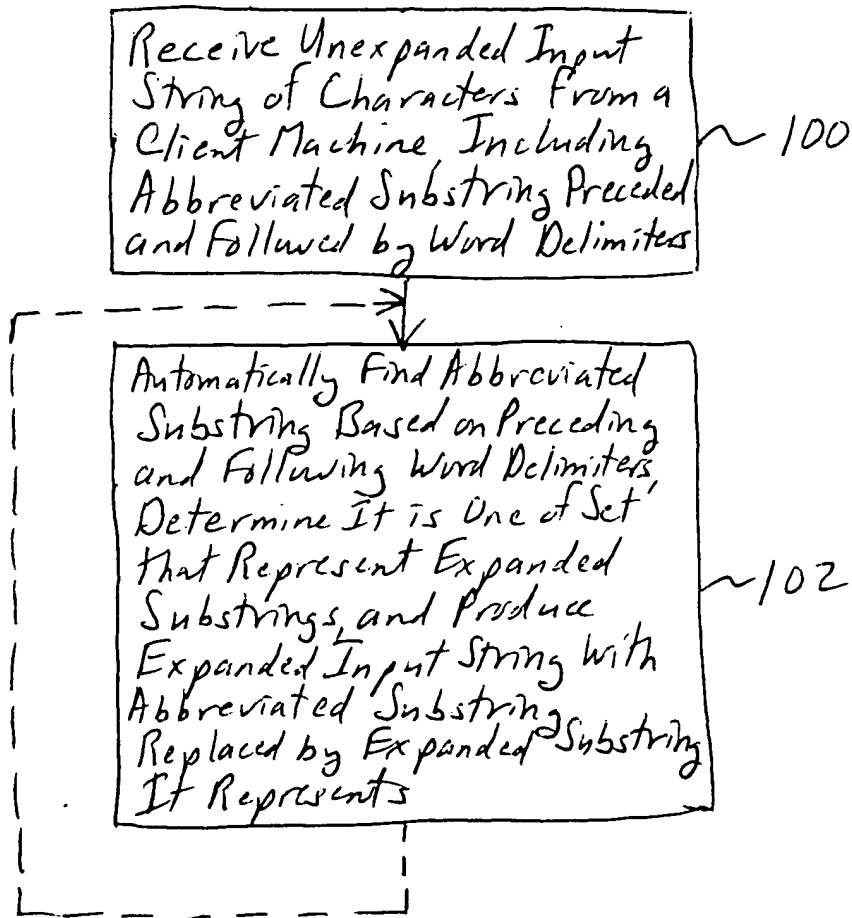 Receive Unexpanded Input
String of Characters From a
Client Machine, Including
Abbreviated Substring Preceded
and Followed by Word Delimiters
100
Automatically Find Abbreviated
Substring Based on Preceding
and Following Word Delimiters,
Determine It is One of Set
that Represent Expanded
Substrings, and Produce
Expanded Input String With
Abbreviated Substring
Replaced by Expanded Substring
It Represents
102